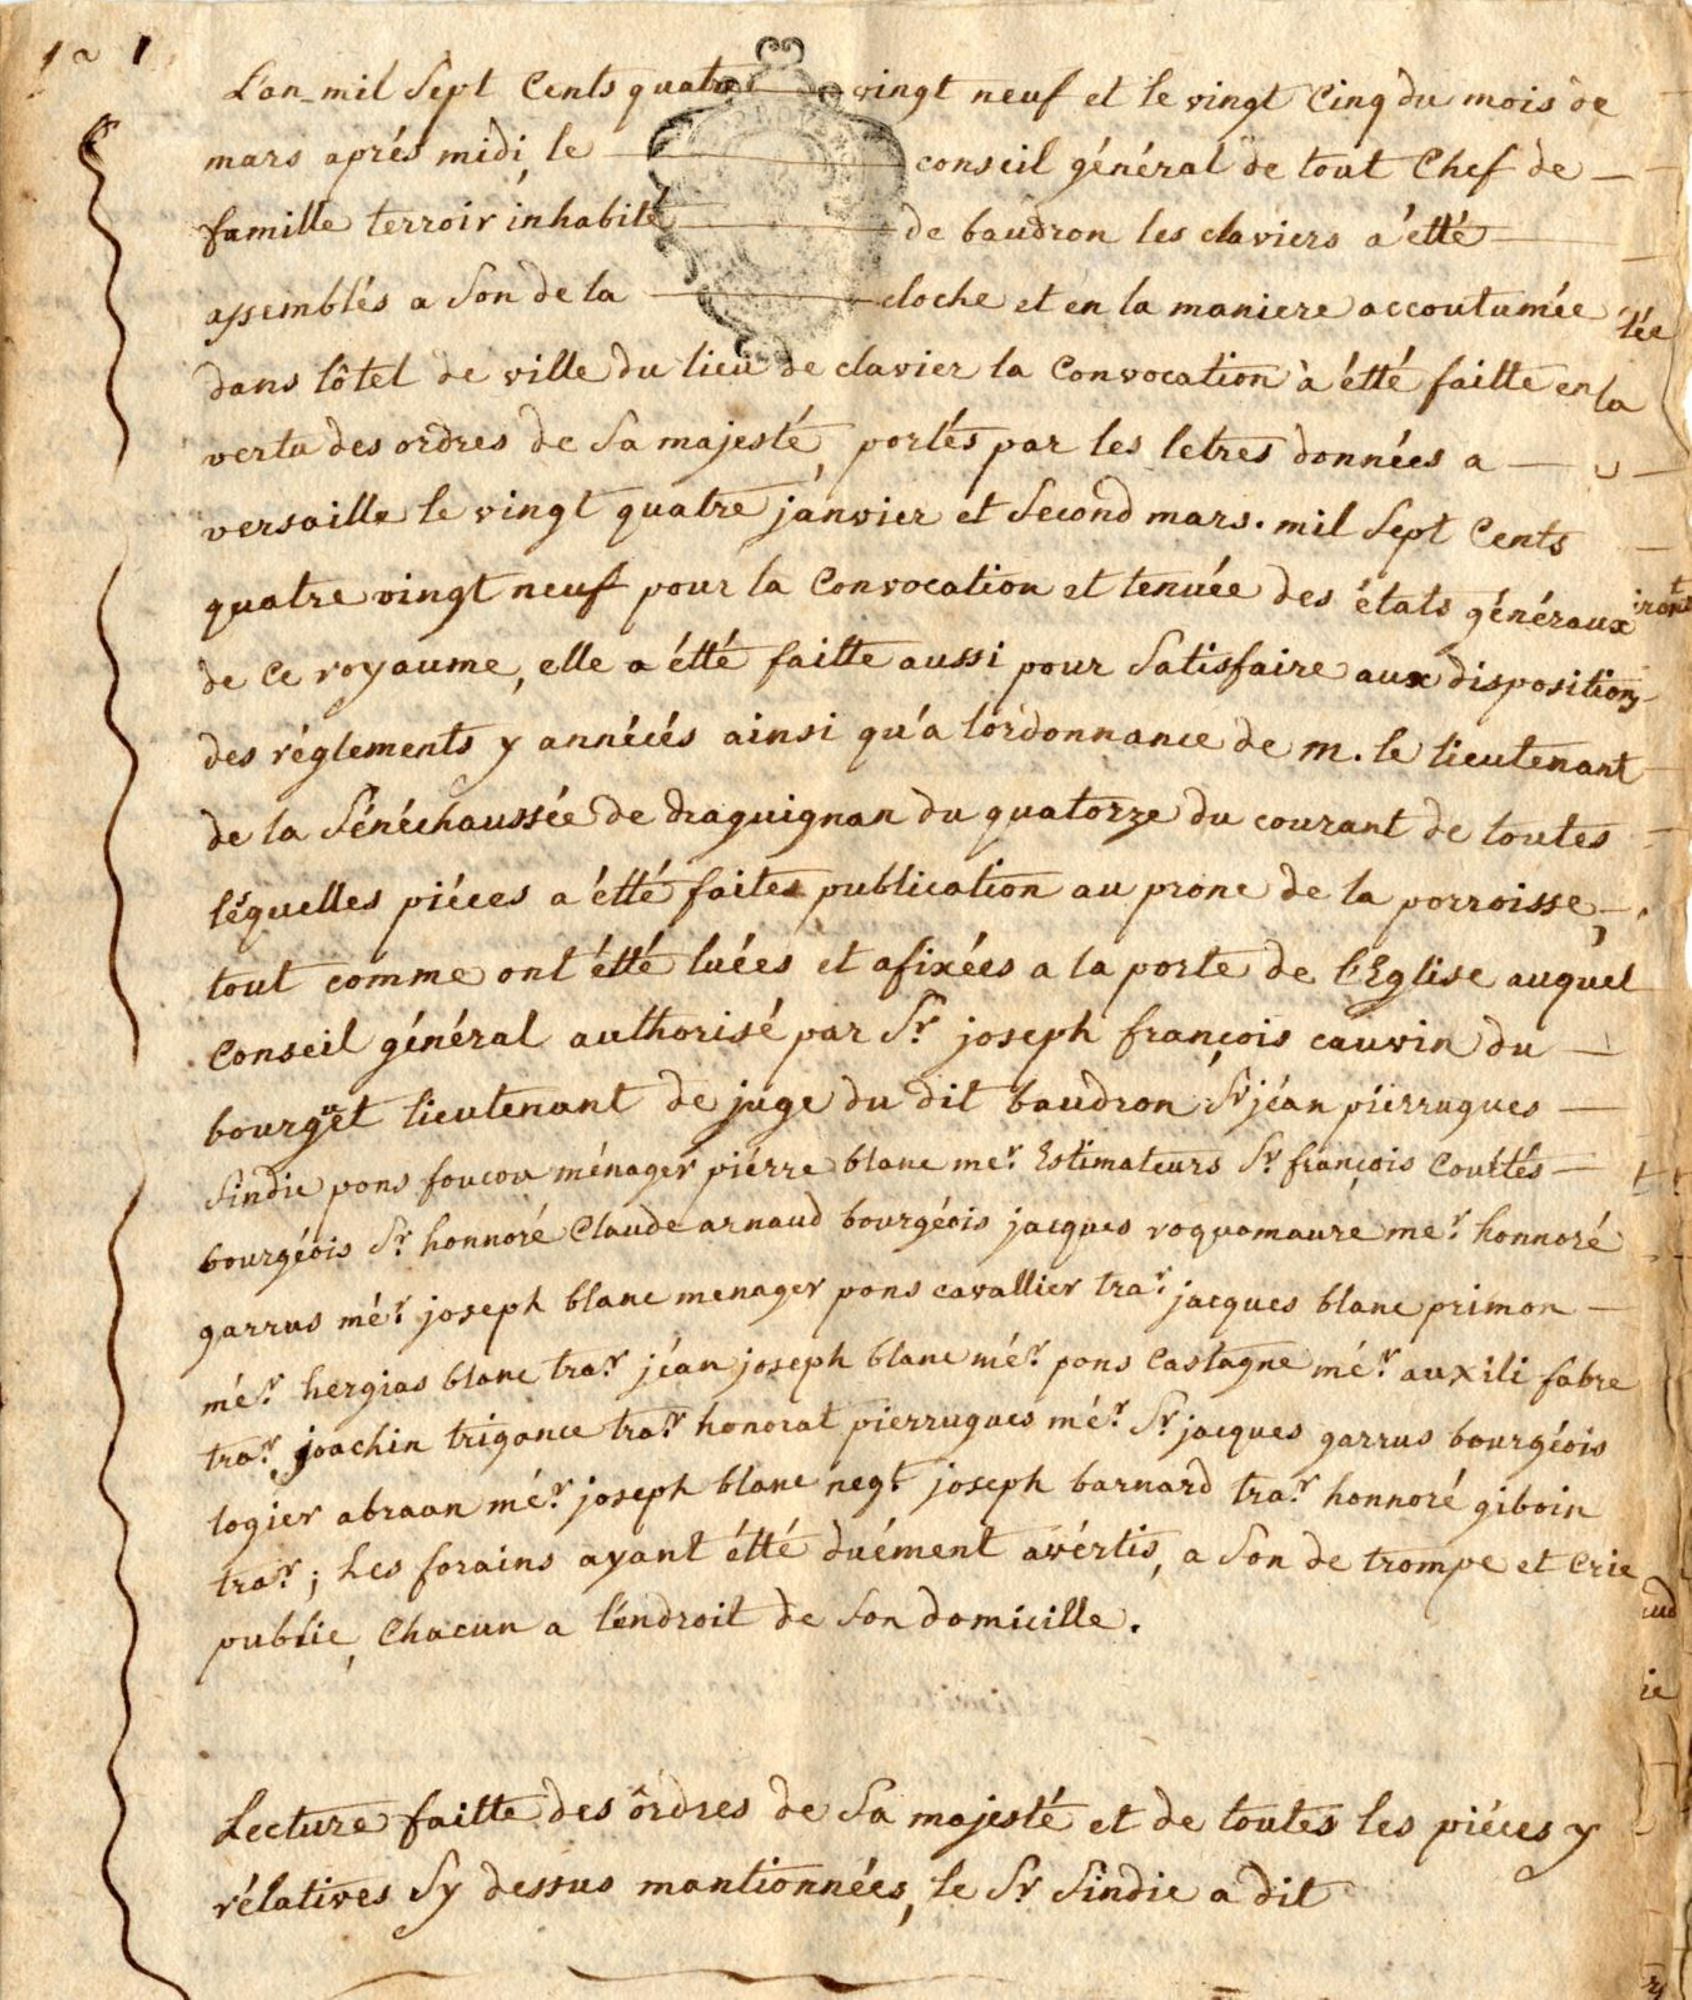 1 a 1
L'an mil Sept Cents quatre vingt neuf et le vingt Cinq du mois de
mars aprés midi, le conseil général de tout Chef de
famille terroir inhabité de baudron les claviers a été
assemblés a Son de la cloche et en la maniere accoutumée
dans lôtel de ville du lieu de clavier la Convocation à étté faitte en
vertu des ordres de Sa majesté, portés par les letres données a
versaille le vingt quatre janvier et Second mars. mil Sept Cents
quatre vingt neuf pour la Convocation et tenuée des états généraux
de Ce royaume, elle a étté faitte aussi pour Satisfaire aux dispositions
des réglements y annécés ainsi qu'a lordonnance de m. le lieutenant
de la Sénéchaussée de draguignan du quatorze du courant de toutes
léquelles piéces a étté faites publication au prone de la porroisse,
tout comme ont étté luées et afixées a la porte de l'Eglise auquel
Conseil général authorisé par Sr. joseph françois cauvin du
bourguet lieutenant de juge du dit baudron Sr jéan piérrugues
Sindic pons foucou ménager piérre blanc mer. Estimateurs Sr. françois Courtés
bourgéois Sr. honnoré Claude arnaud bourgéois jacques roquomaure mer. honnoré
garrus mér. joseph blanc menager pons cavallier trar. jacques blanc primon
mér. hergias blanc trar. jéan joseph blanc mér. pons Castagne mér. auxili fabre
trar. joachin trigance trar. honorat pierrugues mér. Sr. jacques garrus bourgéois
logier abraan mér. joseph blanc negt. joseph barnard trar. honnoré giboin
trar.; Les forains ayant étté duément avértis, a Son de trompe et Crie
public, Chacun a l'endroit de Son domicille.
Lecture faitte des ôrdres de Sa majesté et de toutes les piéces y
rélatives Sy dessus mantionnées, le Sr. Sindic a dit